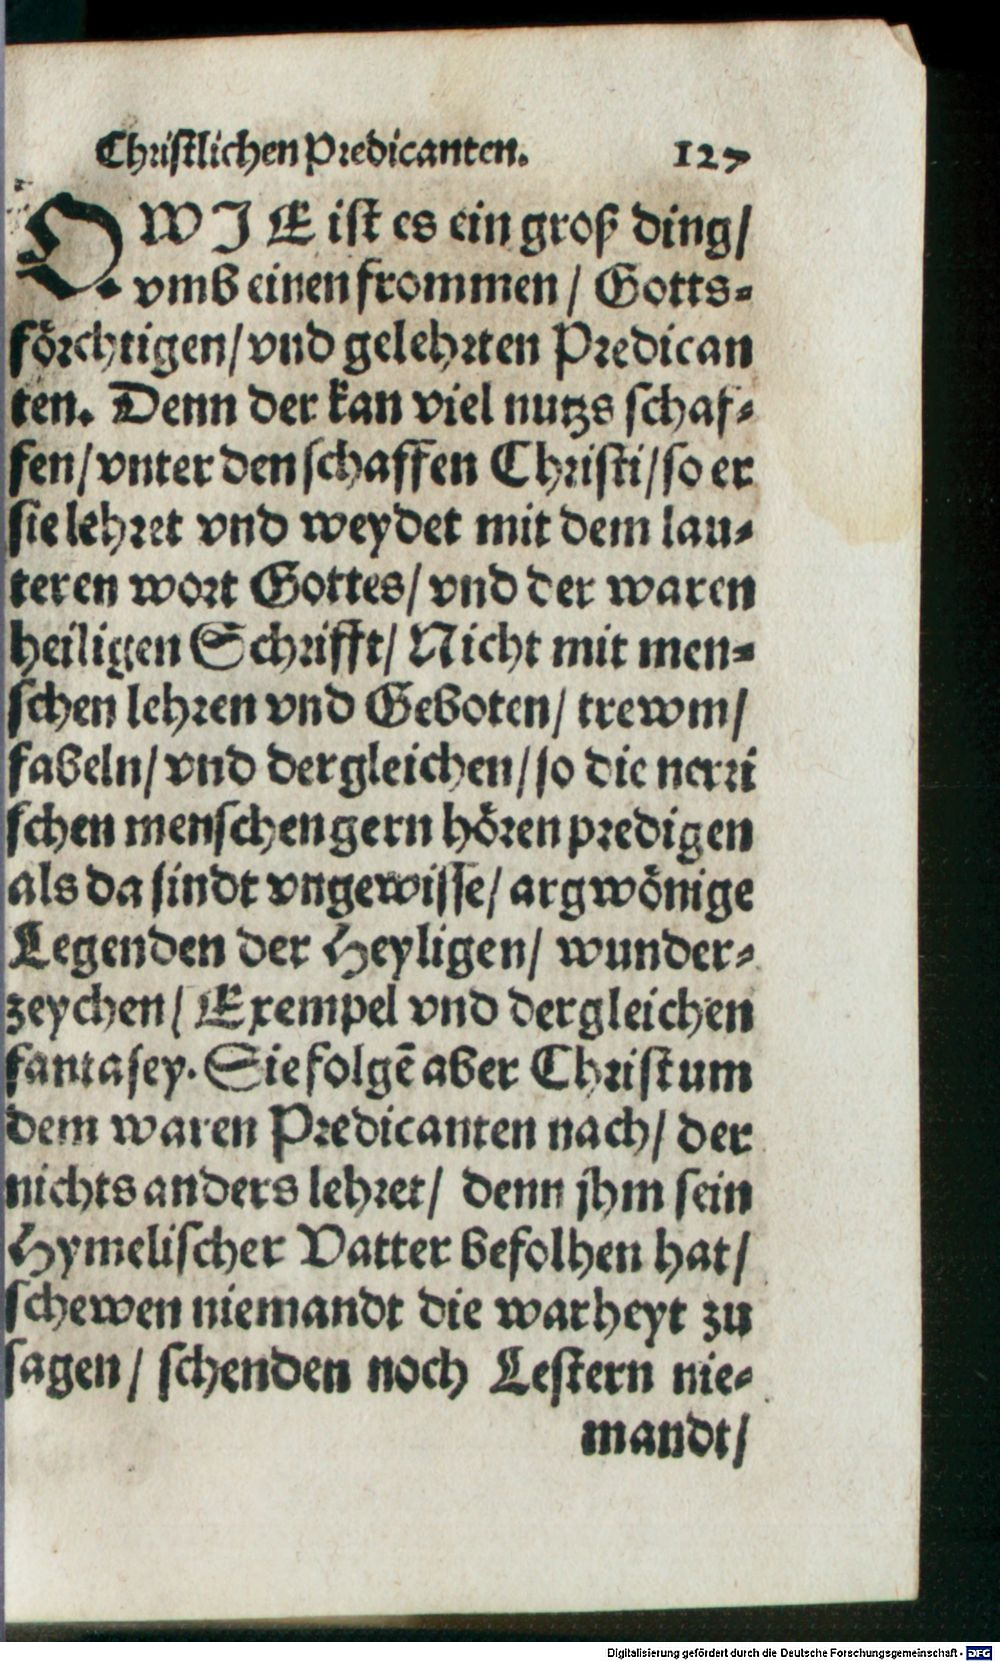 Christlichen Predicanten. 127
O WJE ist es ein groß ding/
vmb einen frommen / Gotts-
förchtigen/ vnd gelehrten Predican
ten. Denn der kan viel nutzs schaf-
fen/ vnter den schaffen Christi/ so er
sie lehret vnd weydet mit dem lau-
teren wort Gottes/ vnd der waren
heiligen Schrifft/ Nicht mit men-
schen lehren vnd Geboten/ trewm/
fabeln/ vnd dergleichen/ so die nerri
schen menschen gern hören predigen
als da sindt vngewisse/ argwönige
Legenden der Heyligen/ wunder-
zeychen/ Exempel vnd dergleichen
fantasey. Sie folgẽ aber Christum
dem waren Predicanten nach/ der
nichts anders lehret/ denn jhm sein
Hymelischer Vatter befolhen hat/
schewen niemandt die warheyt zu
sagen/ schenden noch Lestern nie-
mandt/
Digitalisierung gefördert durch die Deutsche Forschungsgemeinschaft - DFG